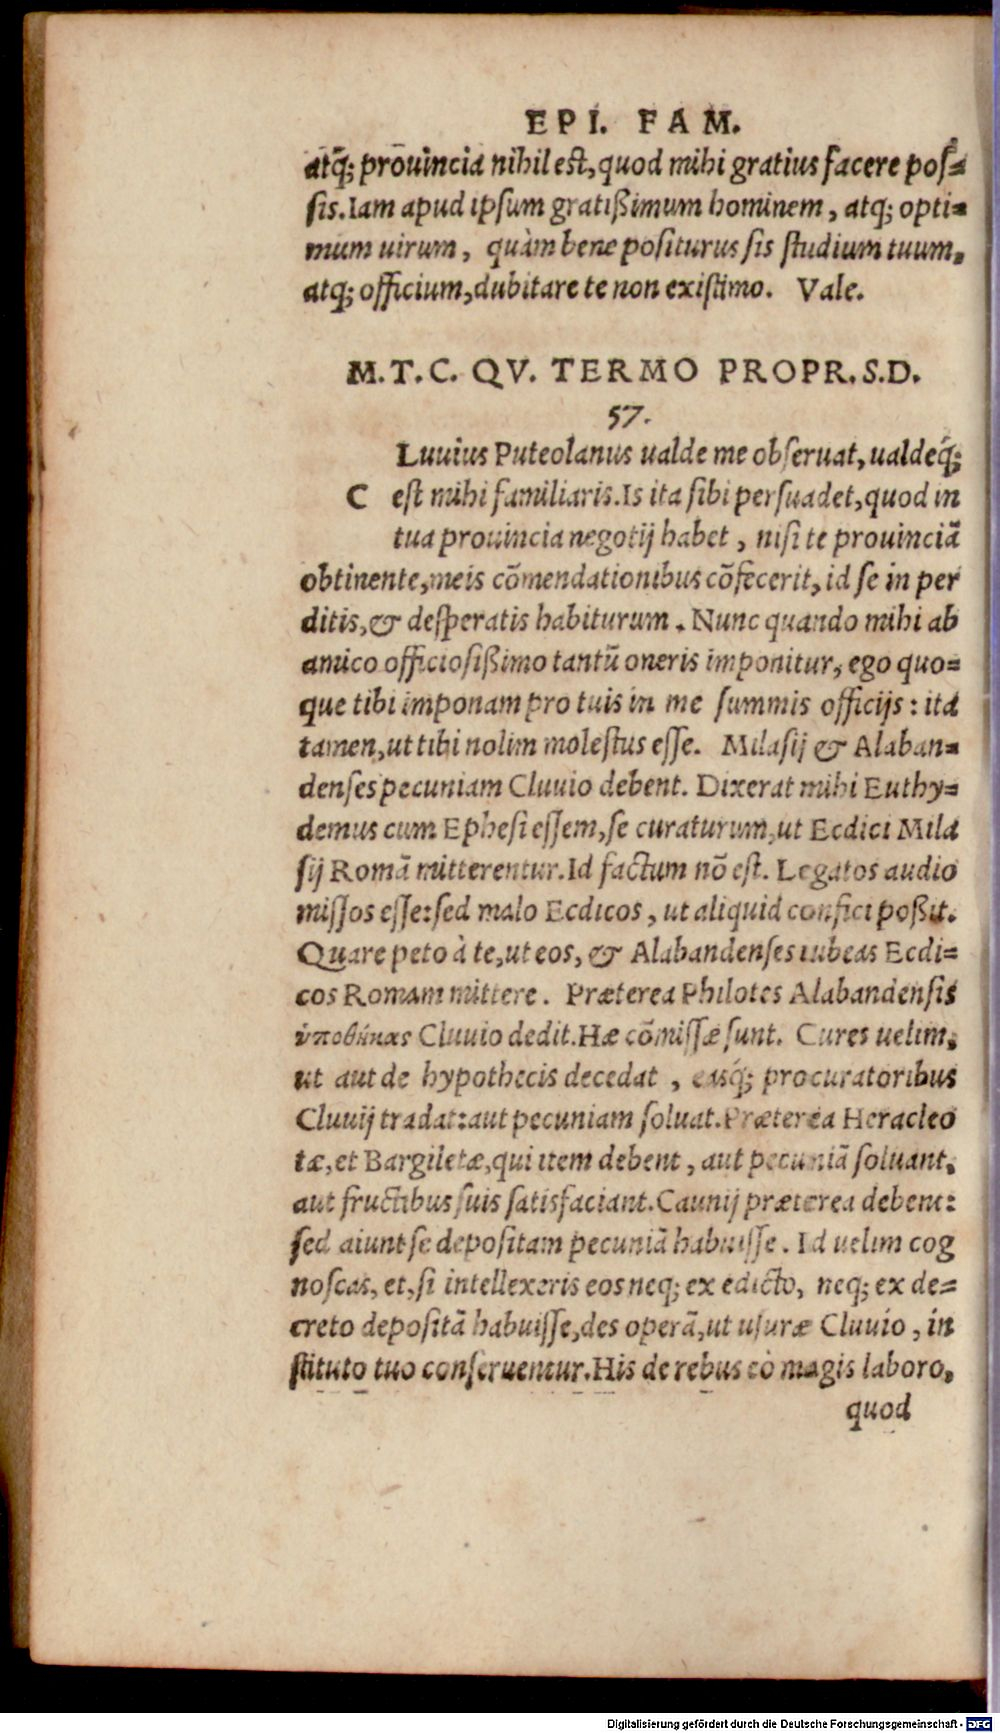 EPI. FAM.
atq́; prouincia nihil est, quod mihi gratius facere pos=
sis. Iam apud ipsum gratißimum hominem, atq; opti=
mum uirum, quàm bene positurus sis studium tuum,
atq; officium, dubitare te non existimo. Vale.
M. T. C. QV. TERMO PROPR. S. D.
57.
Luuius Puteolanus ualde me obseruat, ualdeq́;
C est mihi familiaris. Is ita sibi persuadet, quod in
tua prouincia negotij habet, nisi te prouinciā
obtinente, meis cōmendationibus cōfecerit, id se in per
ditis, & desperatis habiturum. Nunc quando mihi ab
amico officiosißimo tantū oneris imponitur, ego quo=
que tibi imponam pro tuis in me summis officijs: ita
tamen, ut tibi nolim molestus esse. Milasij & Alaban=
denses pecuniam Cluuio debent. Dixerat mihi Euthy=
demus cum Ephesi essem, se curaturum, ut Ecdici Mila
sij Romā mitterentur. Id factum nō est. Legatos audio
missos esse: sed malo Ecdicos, ut aliquid confici poßit.
Quare peto à te, ut eos, & Alabandenses iubeas Ecdi=
cos Romam mittere. Præterea Philotes Alabandensis
ὑποθήκας Cluuio dedit. Hæ cōmissæ sunt. Cures uelim,
ut aut de hypothecis decedat, easq́; procuratoribus
Cluuij tradat: aut pecuniam soluat. Præterea Heracleo
tæ, et Bargiletæ, qui item debent, aut pecuniā soluant,
aut fructibus suis satisfaciant. Caunij præterea debent:
sed aiunt se depositam pecuniā habuisse. Id uelim cog
noscas, et, si intellexeris eos neq; ex edicto, neq; ex de=
creto depositā habuisse, des operā, ut usuræ Cluuio, in
stituto tuo conseruentur. His de rebus eò magis laboro,
quod
Digitalisierung gefördert durch die Deutsche Forschungsgemeinschaft - DFG